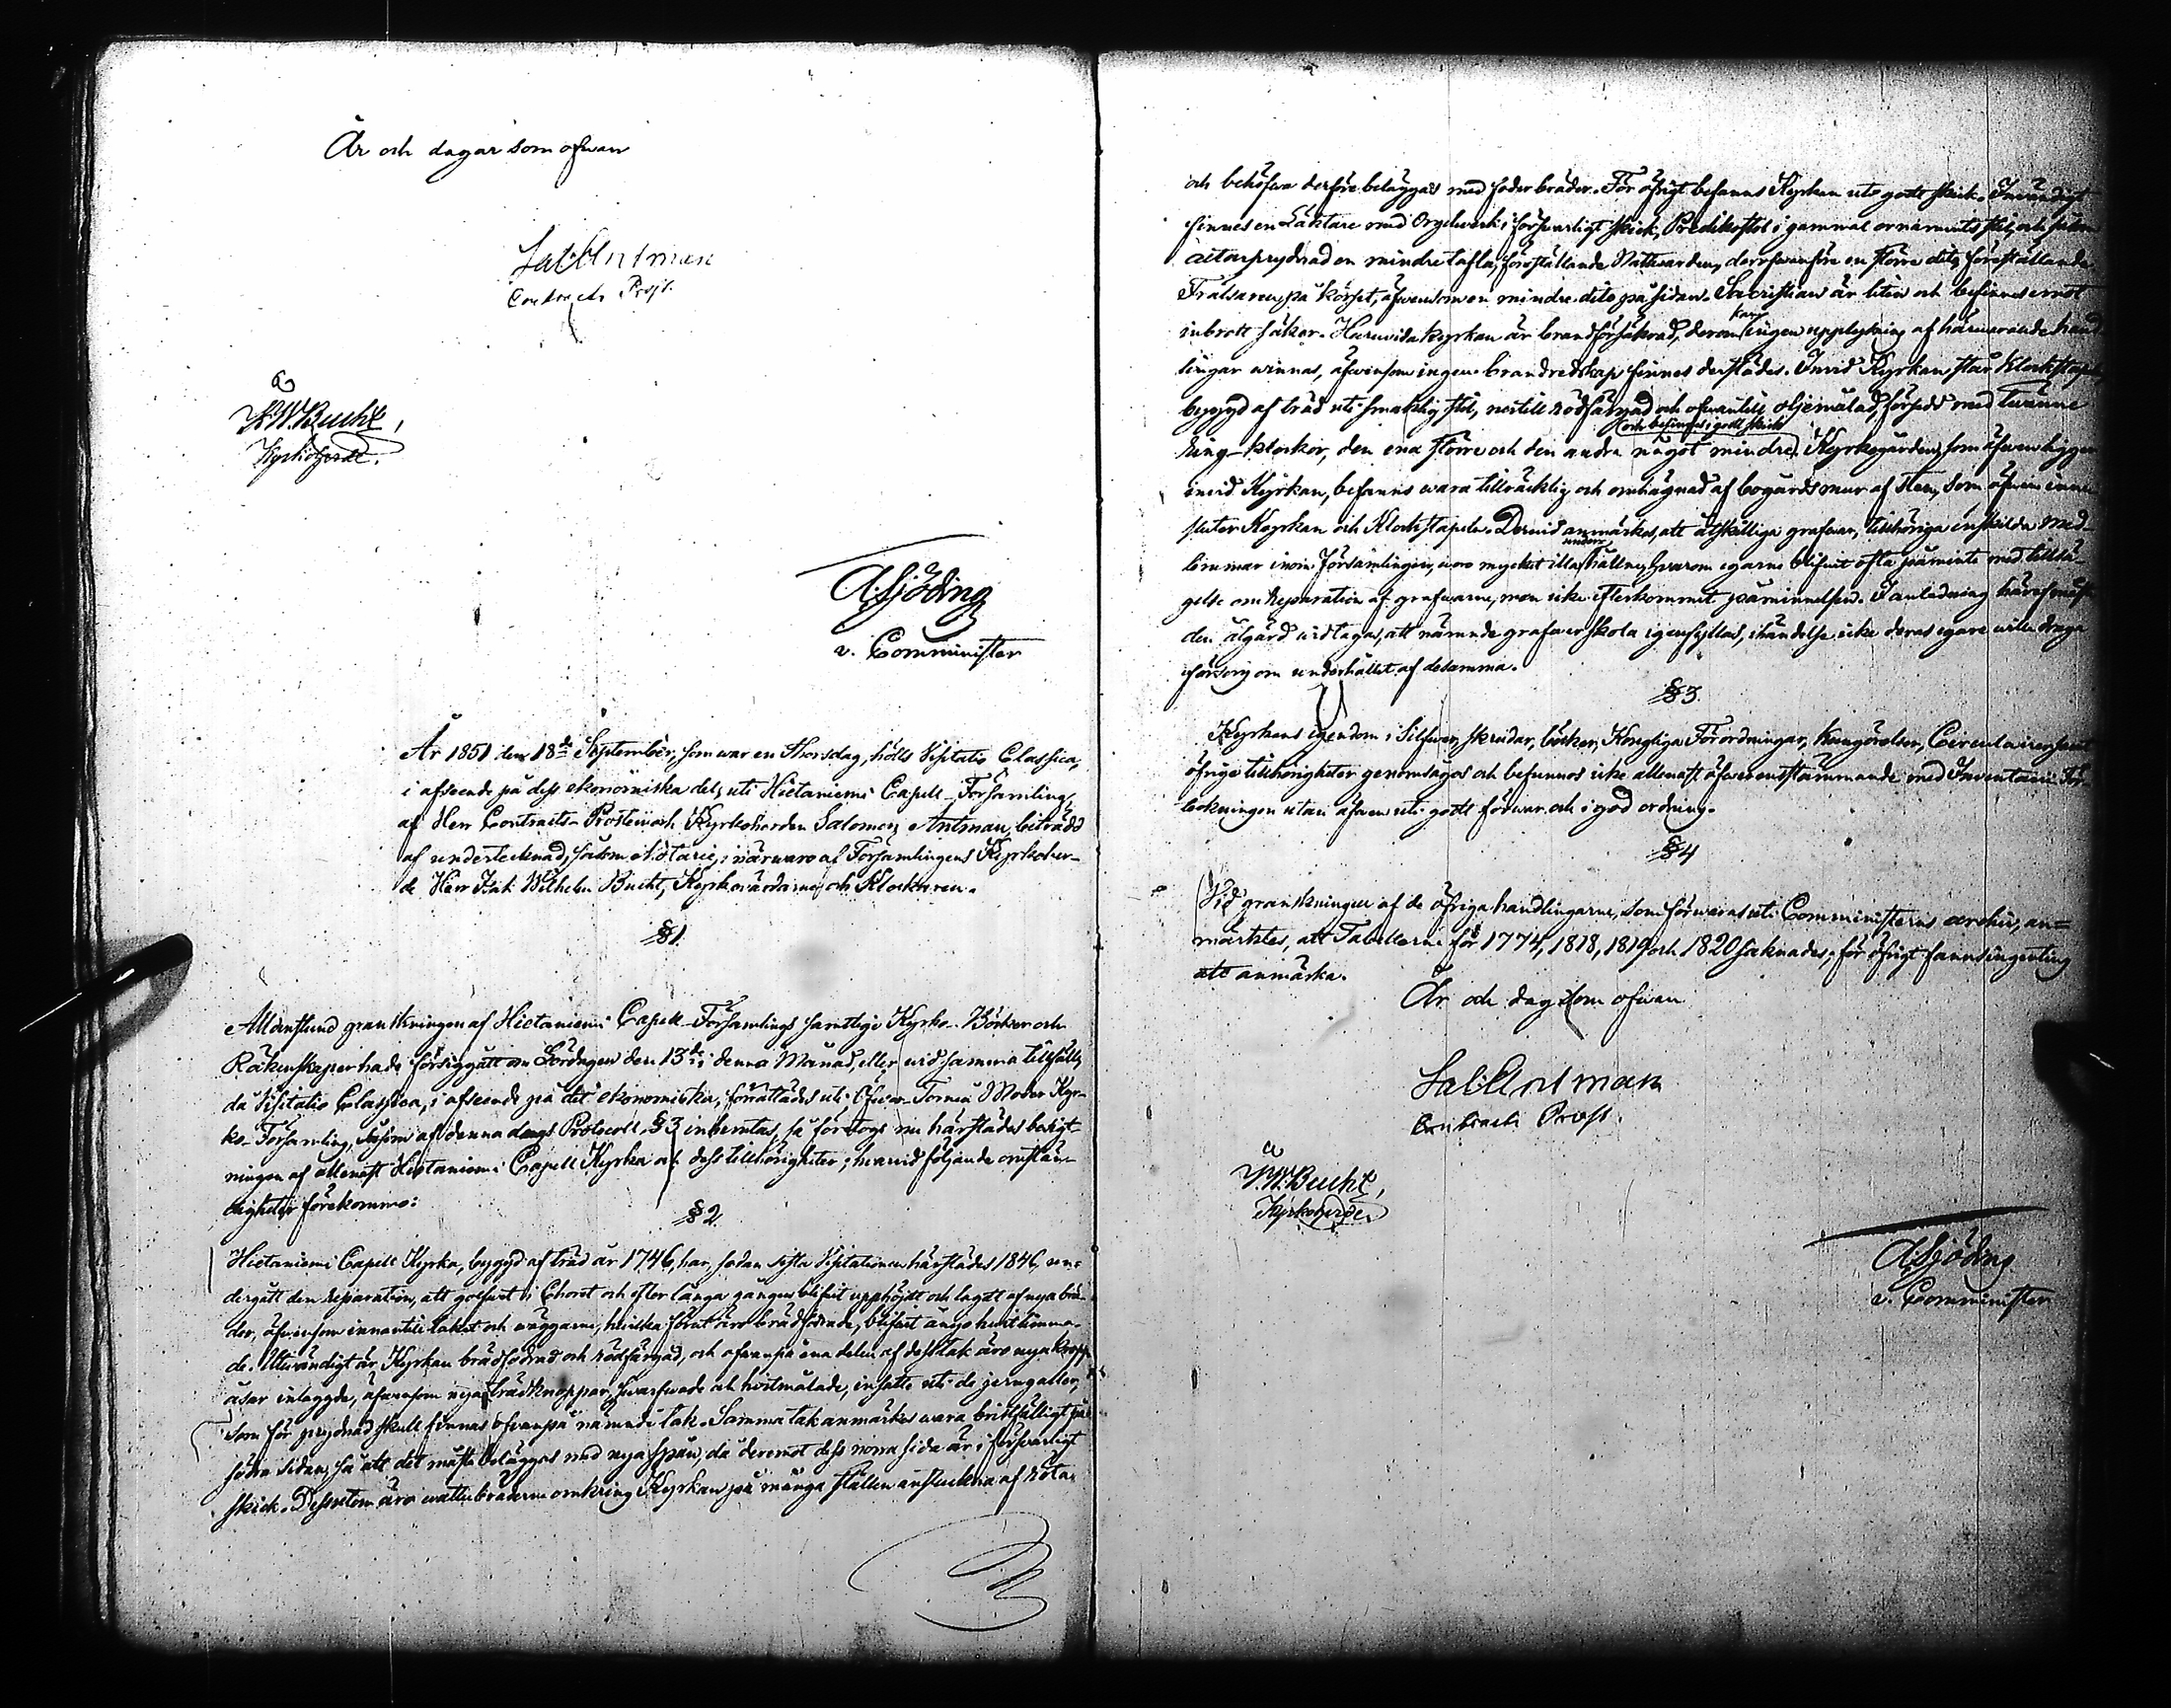 År och dagar som ofwan
Sal: Antman
Contracts Prost.
I. W. Bucht,
Kyrkoherde.
A. Sjöding
v. Comminister
År 1851 den 18de September, som war en Thorsdag, hölls Visitatio Classica,
i afseende på dess ekonomiska del, uti Hietaniemi Capell-Församling,
af Herr Contracts-Prosten och Kyrkoherden Salomon Antman, biträdd
af undertecknad, såsom Notarie, i närwaro af Församlingens Kyrkoher-
de Herr Isak Wilhelm Bucht, Kyrkowärdarne och Klockaren.
§ 1
Alldenstund granskningen af Hietaniemi Capell-Församlings samtliga Kyrko-Böcker och
Räkenskaper hade försiggått om Lördagen den 13de i denna Månad, eller wid samma tillfälle,
då Visitatio Classica, i afseende på det ekonomiska, förrättades uti Öfwer-Torneå Moder Kyr-
ko-Församling, såsom af denna dags Protocoll § 3 inhemtas, så företogs nu härstädes besigt-
ningen af allenast Hietaniemi Capell Kyrka och dess tillhörigheter; hwarwid följande omstän-
digheter förekommo:
§ 2
Hietaniemi Capell Kyrka, byggd af träd år 1746, har, sedan sista Visitationen härstädes 1846, un-
dergått den reparation, att golfwet i Choret och efter långa gången blifwit upphöjdt och lagdt af nya brä-
der, äfwensom innantill taket och wäggarne, hwilka förut äro brädfodrade, blifwit ånyo hwitlimma-
de. Utwändigt är Kyrkan brädfodrad och rödfärgad, och ofwanpå ena delen af dess tak äro nya kropp-
åsar inlaggde, äfwensom nya trädknoppar, swarfwade och hwitmålade, insatte uti de jerngaller,
som för prydnad skull finnas ofwanpå nämnde tak. Samma tak anmärkes wara bristfälligt på
södra sidan, så att det måste beläggas med nya spån, då deremot dess norra sida är i försvarligt
skick. Dessutom äro wattubräderne omkring Kyrkan på många ställen anstuckna af röta,
och behöfwa derföre beläggas med foderbräder. För öfrigt befanns Kyrkan uti godt skick. Inwändigt
finnes en Läktare med Orgelwerk i försvarligt skick, Predikstol i gammal ornaments stil, och såsom
altarprydnad en mindre tafla, föreställande Nattwarden, derofwanföre en större dito, föreställande
Frälsaren på korset, äfwensom en mindre dito på sidan. Sacristian är liten och befinnes emot
inbrott säker. Huruvida kyrkan är brandförsäkrad, derom kan ingen upplysning af härwarande hand-
lingar winnas, äfwensom ingen brandredskap finnes derstädes. Inwid Kyrkan står Klockstapeln
byggd af träd uti smaklig stil, nertill rödfärgad och ofwantill oljemålad, försedd med twänne
och befinnes i godt skick
Ring-klockor, den ena större och den andra något mindre. Kyrkogården, som äfwen ligger
inwid Kyrkan, befanns wara tillräcklig och omhägnad af bogårdsmur af sten, som äfwen inne-
sluter Kyrkan och Klockstapeln. Derwid anmärkes, att åtskilliga grafwar, tillhöriga enskilda med-
lemmar inom Församlingen, woro mycket illa underhållne, hwarom egarne blifwit ofta påminte med tillsä-
gelse om Reparation af grafwarne, men icke efterkommit påminnelsen. I anledning häraf måste
den åtgärd widtagas, att nämnde grafwar skola igenfyllas, i händelse icke deras egare wilja draga
försorg om underhållet af desamma.
§ 3.
Kyrkans egendom i Silfwer, skrudar, böcker, Kongliga Förordningar, kungörelser, Circulairer samt
öfriga tillhörigheter genomsågos och befunnos icke allenast öfwerensstämmande med Inventarii För-
teckningen utan äfwen uti godt förwar och i god ordning.
§ 4
Wid granskningen af de öfriga handlingarne, som förwaras uti Comministerns archiv, an-
märktes, att Tabellerne för 1774, 1818, 1819 och 1820 saknades; för öfrigt fanns ingenting
att anmärka.
År och dag som ofwan
Sal: Antman
Contracts Prost.
I. W. Bucht,
Kyrkoherde.
A. Sjöding
v. Comminister